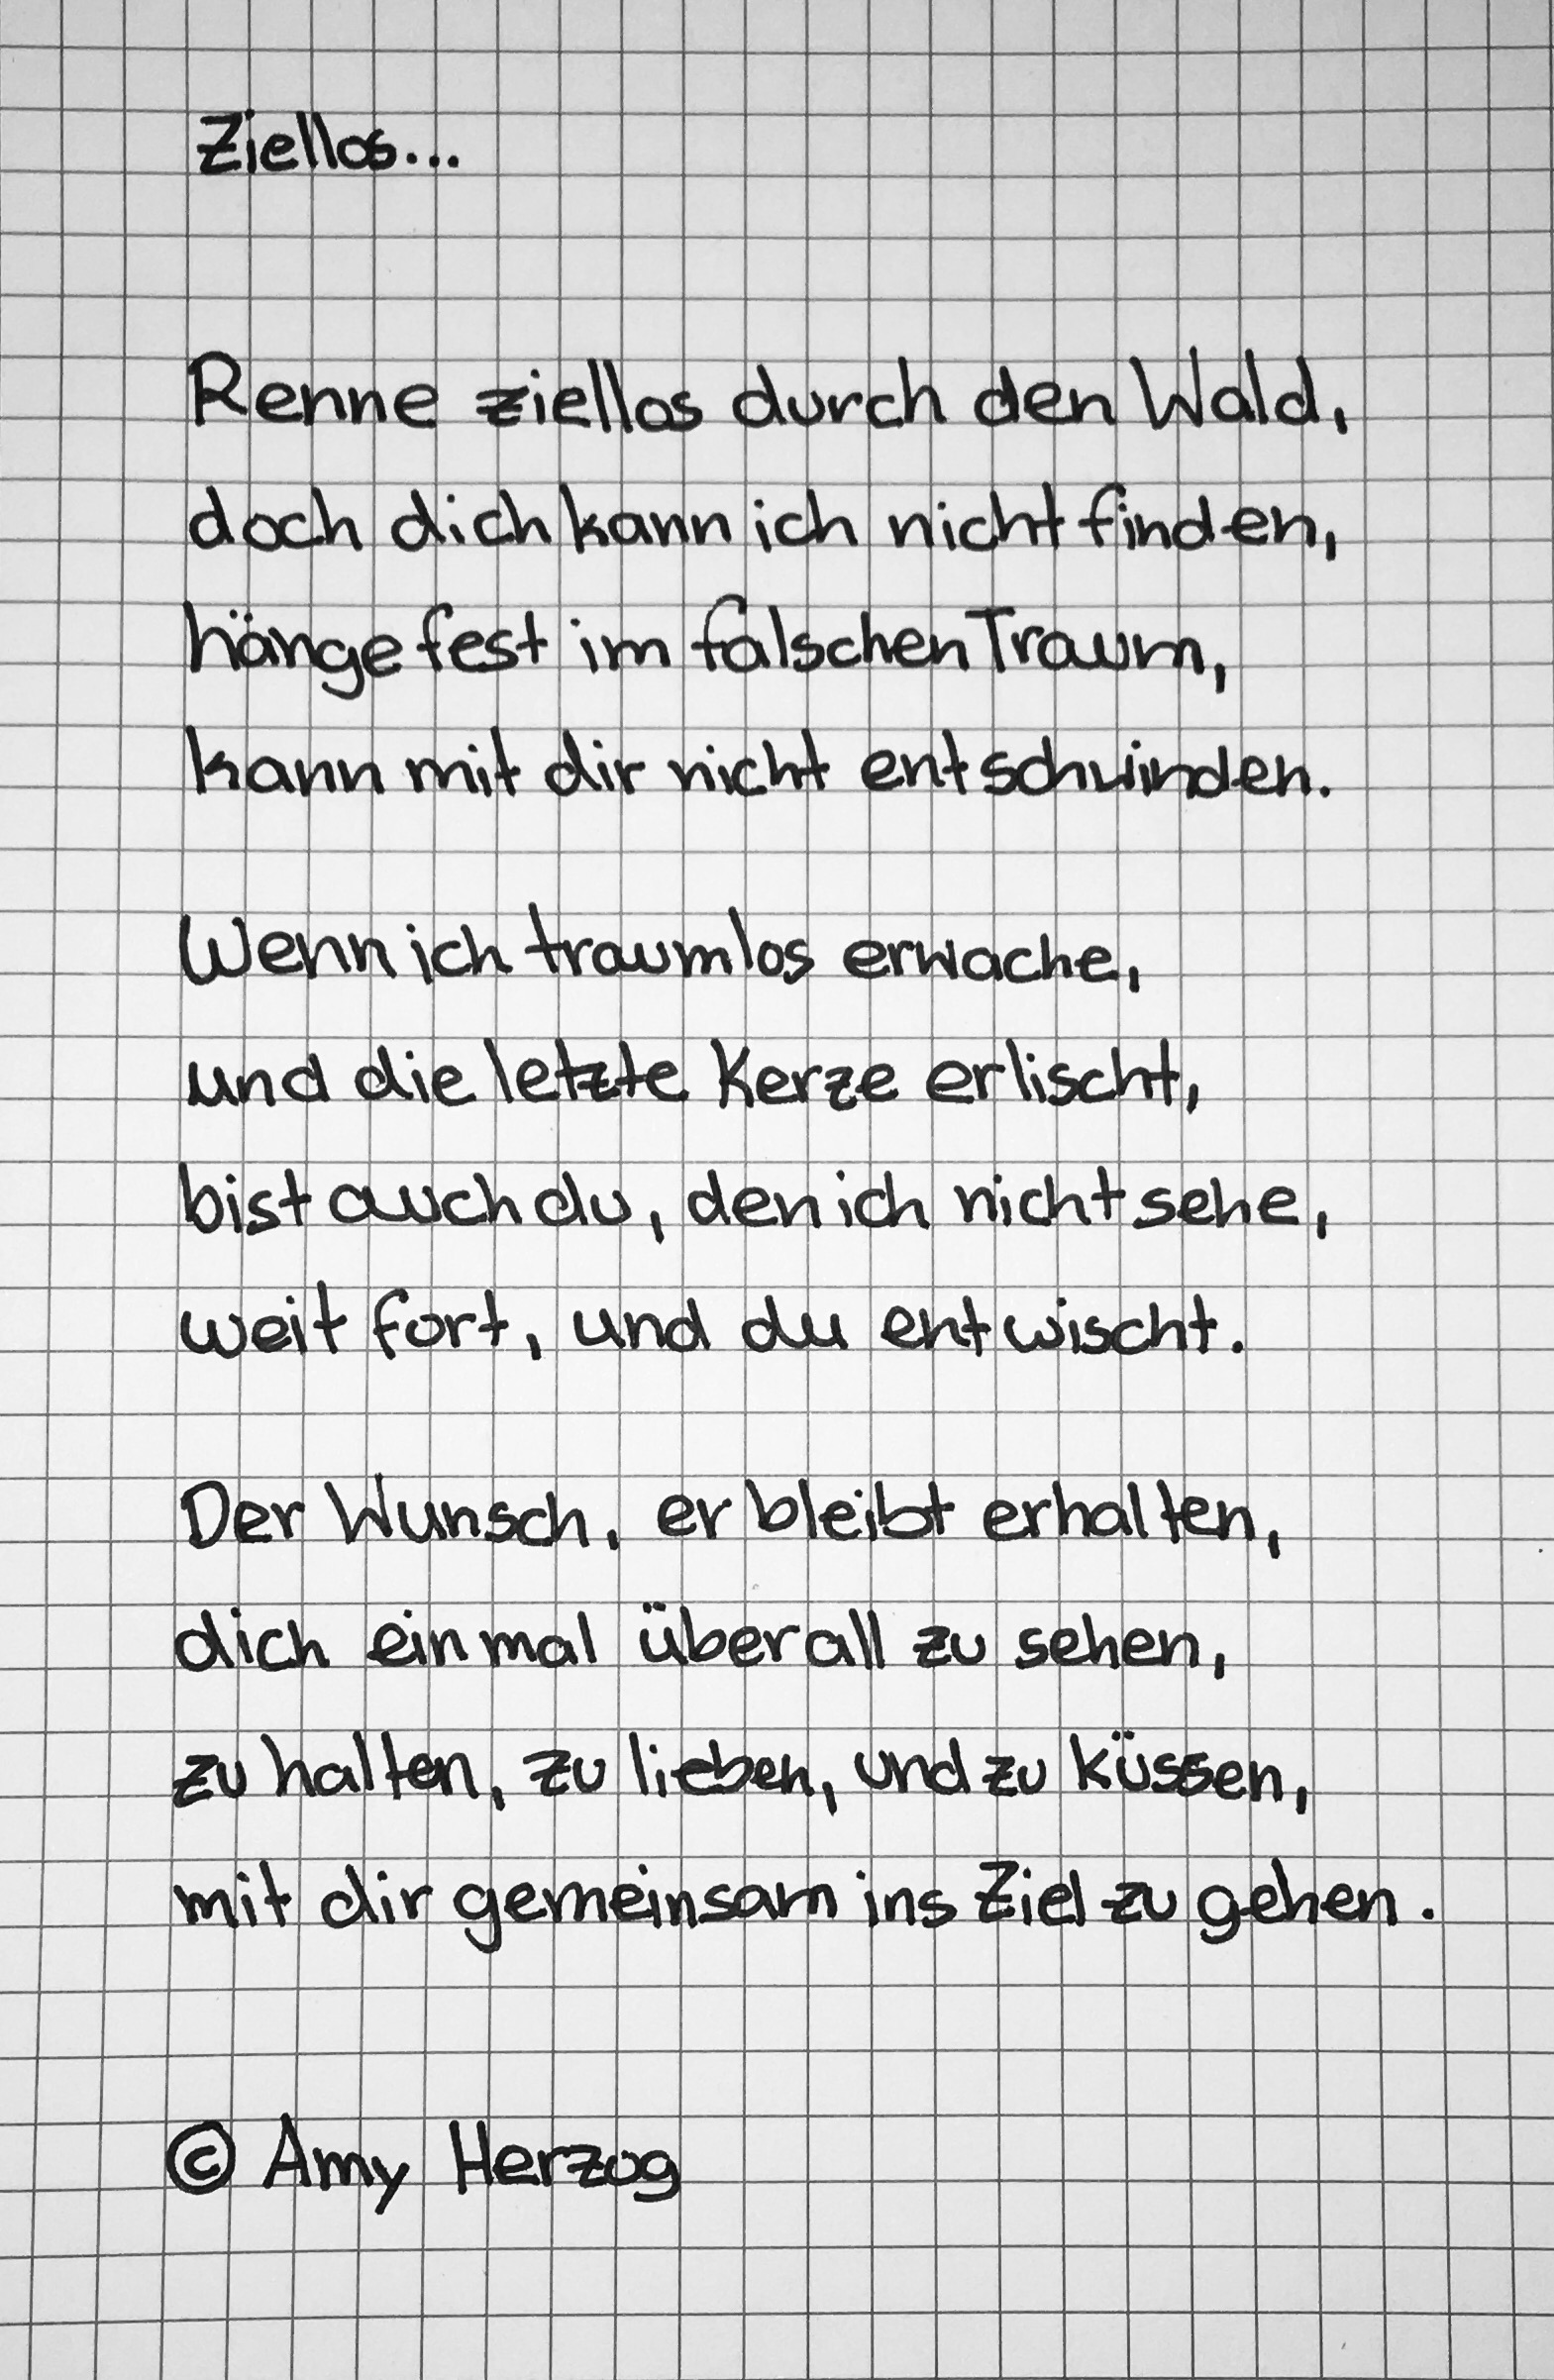 Ziellos...
Renne ziellos durch den Wald,
doch dich kann ich nicht finden,
hänge fest im falschen Traum,
kann mit dir nicht entschwinden.
Wenn ich traumlos erwache,
und die letzte Kerze erlischt,
bist auch du, den ich nicht sehe,
weit fort, und du entwischt.
Der Wunsch, er bleibt erhalten,
dich einmal überall zu sehen,
zu halten, zu lieben, und zu küssen,
mit dir gemeinsam ins Ziel zu gehen.
© Amy Herzog